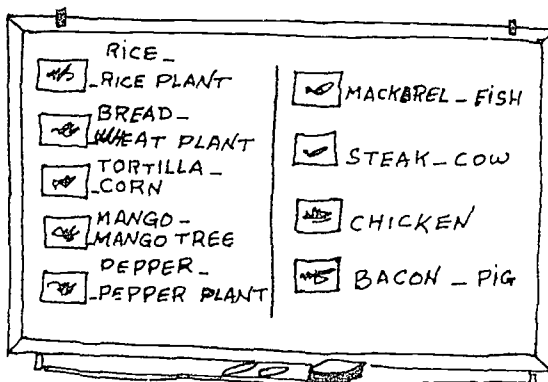 RICE_
_RICE PLANT
BREAD_
WHEAT PLANT
TORTILLA_
_CORN
MANGO_
MANGO TREE
PEPPER_
_PEPPER PLANT
MACKEREL_FISH
STEAK_COW
CHICKEN
BACON_PIG